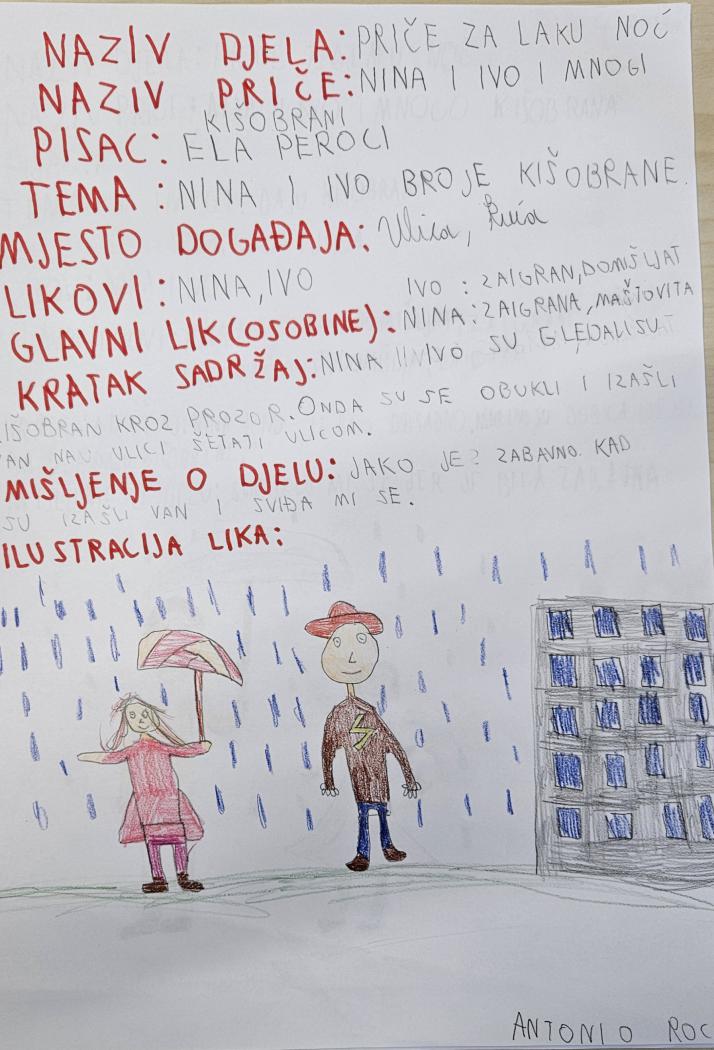 NAZIV DJELA: PRIČE ZA LAKU NOĆ
NAZIV PRIČE: NINA I IVO I MNOGI
KIŠOBRANI
PISAC: ELA PEROCI
TEMA: NINA I IVO BROJE KIŠOBRANE.
MJESTO DOGAĐAJA: Ulica, kuća
LIKOVI: NINA, IVO
GLAVNI LIK (OSOBINE): IVO: ZAIGRAN, DOMIŠLJAT
NINA: ZAIGRANA, MAŠTOVITA
KRATAK SADRŽAJ: NINA I IVO SU GLEDALI SU
KIŠOBRAN KROZ PROZOR. ONDA SU SE OBUKLI I IZAŠLI
VAN NA ULICI ŠETATI ULICOM.
MIŠLJENJE O DJELU: JAKO JE ZABAVNO. KAD
SU IZAŠLI VAN I SVIĐA MI SE.
ILUSTRACIJA LIKA:
ANTONIO ROC